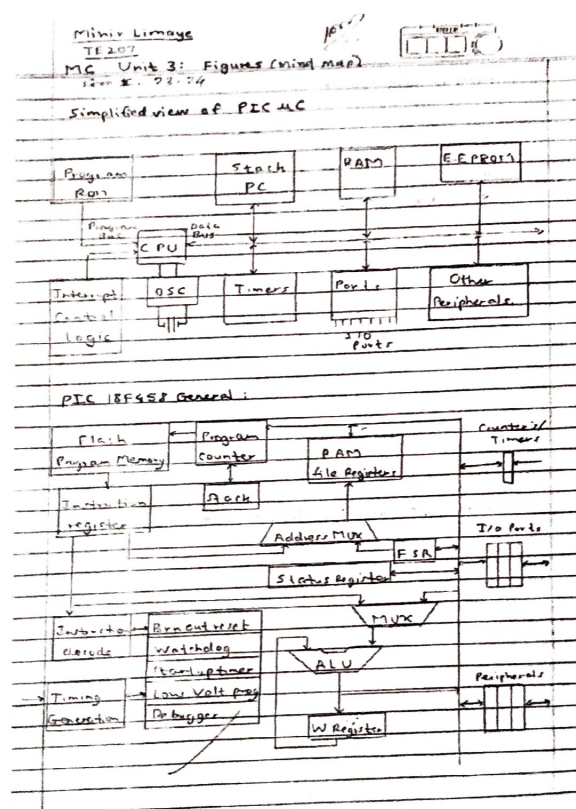 Minir Limaye
TE207
MC Unit 3: Figures (Mind Map)
Simplified view of PIC uC
Program ROM
Stack PC
RAM
EEPROM
Program Bus
CPU
Data Bus
Interrupt Control Logic
OSC
Timers
Ports
Other Peripherals
I/O Ports
PIC 18F458 General:
Flash Program Memory
Program Counter
RAM file Registers
Counters/ Timers
Instruction register
Stack
Address Mux
FSR
I/o Ports
Status Register
MUX
Instructn decode
Brn out reset
Watchdog
Startup timer
Low Volt prog
Debugger
ALU
Timing Generation
W Register
Peripherals